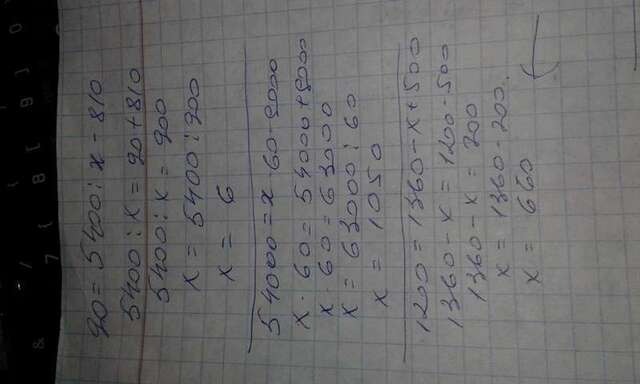 & 7 { 8 [ 9 ] 0
90 = 5400 : x - 810
5400 : x = 90 + 810
5400 : x = 900
x = 5400 : 900
x = 6
54000 = x · 60 - 9000
x · 60 = 54000 + 9000
x · 60 = 63000
x = 63000 : 60
x = 1050
1200 = 1360 - x + 500
1360 - x = 1200 - 500
1360 - x = 700
x = 1360 - 700.
x = 660